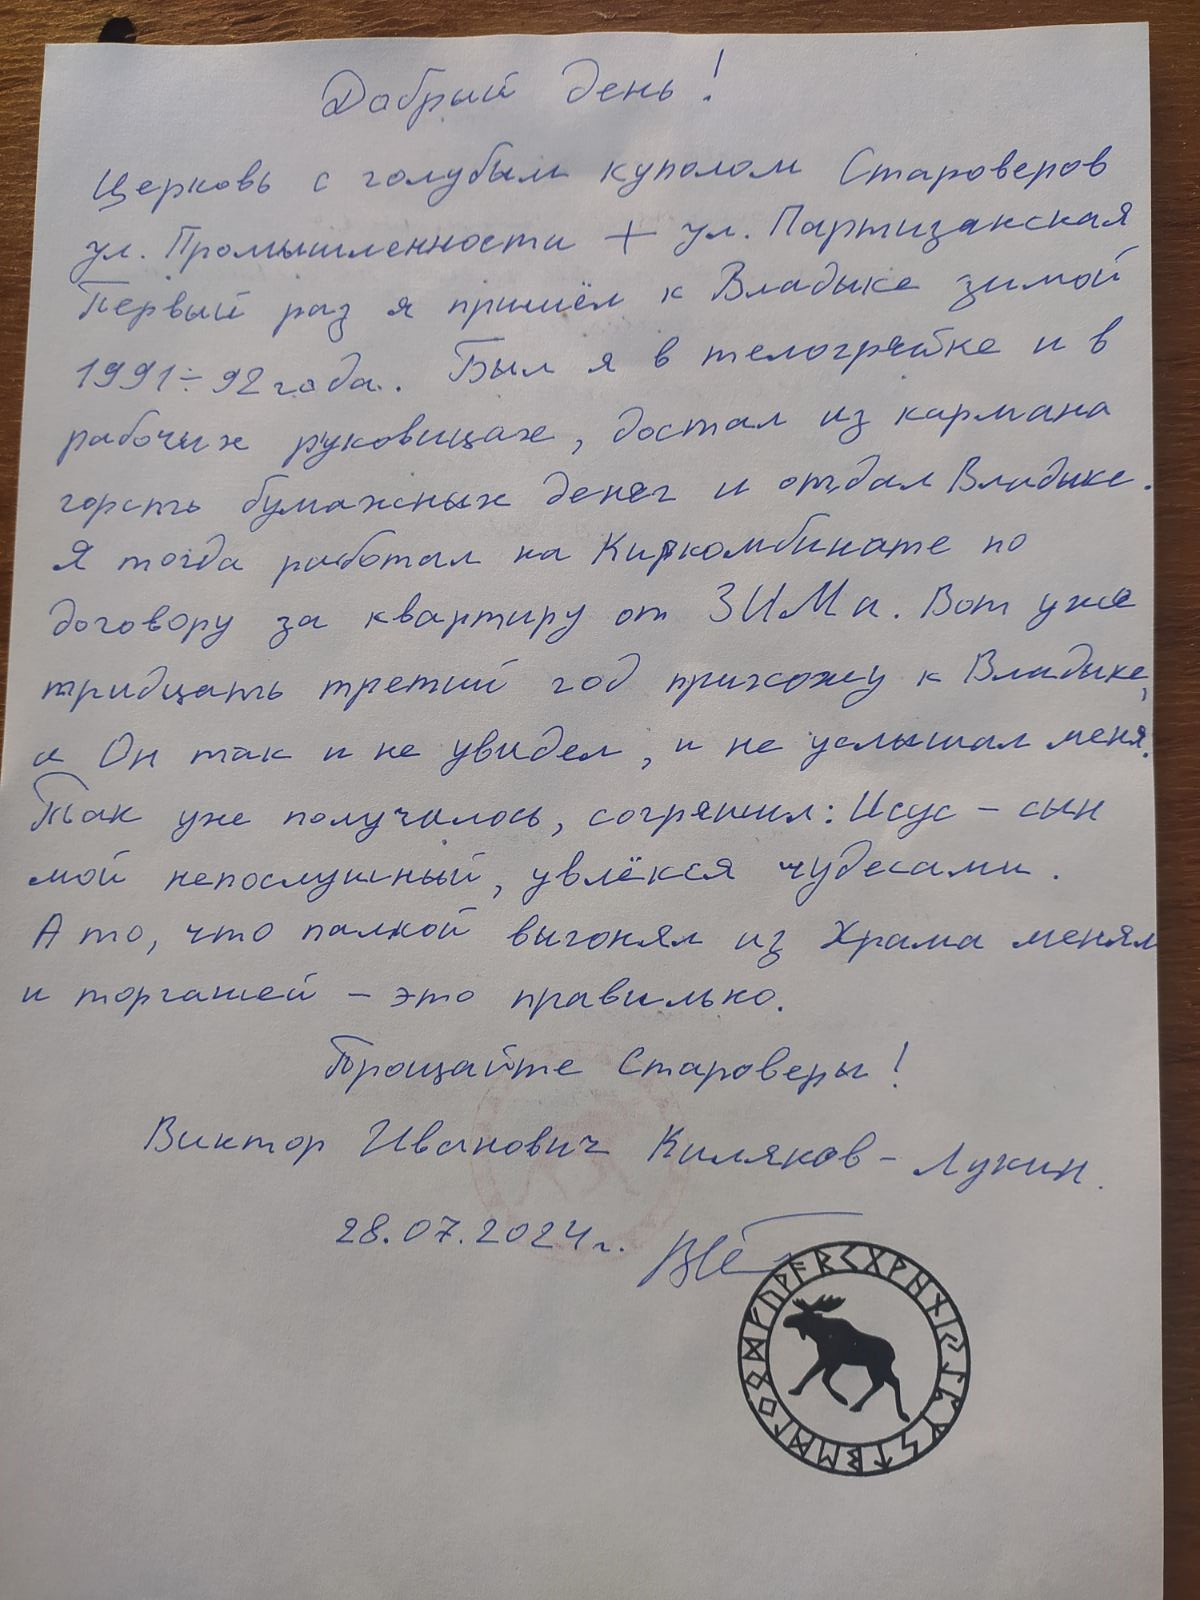 Добрый день!
Церковь с голубым куполом Староверов
ул. Промышленности + ул. Партизанская
Первый раз я пришёл к Владыке зимой
1991÷92 года. Был я в телогрейке и в
рабочих руковицах, достал из кармана
горсть бумажных денег и отдал Владыке.
Я тогда работал на Киркомбинате по
договору за квартиру от ЗИМа. Вот уже
тридцать третий год прихожу к Владыке,
а Он так и не увидел, и не услышал меня.
Так уже получилось, согрешил: Исус – сын
мой непослушный, увлёкся чудесами.
А то, что палкой выгонял из Храма менял
и торгашей – это правильно.
Прощайте Староверы!
Виктор Иванович Киляков – Лукин.
28.07.2024 г.